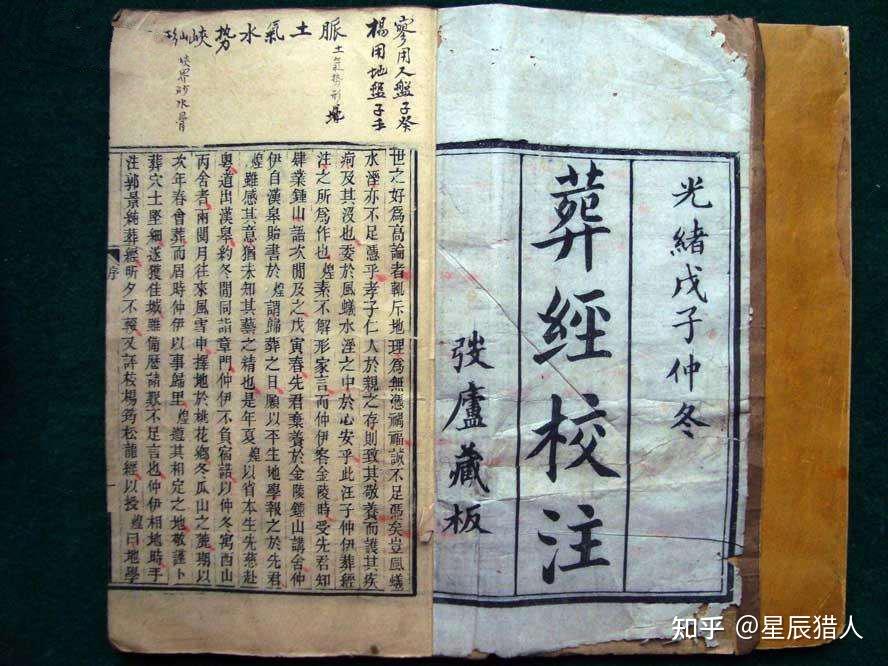 光緒戊子仲冬
葬經校注
弢廬藏板
寥用人盤子癸
楊用地盤子壬
脈
土
氣
水
勢
峽
土氣勢形
峽界砂水骨
世之好為高論者輒斥地理為無憑禍福誠不足憑矣豈風蟻
水溼亦不足憑乎孝子仁人於親之存則致其敬養而護其疾
疴及其沒也委於風蟻水溼之中於心安乎此汪子仲伊葬經
注之所為作也煌素不解形家言而仲伊客金陵時受先君知
肄業鍾山語次閒及之戊寅春先君棄養於金陵鍾山講舍仲
伊自漢皋貽書於煌謂歸葬之日願以平生地學報之於先君
煌雖感其意猶未知其藝之精也是年夏煌以省本生先慈赴
粵道出漢皋約冬閒同詣章門仲伊不負宿諾以仲冬寓西山
丙舍者兩閱月往來風雪中擇地於桃花鄉冬瓜山之麓瑞以
次年春會葬而屆時仲伊以事歸里煌遊其相定之地敬謹卜
葬穴土堅細遂獲佳城雖葡歷諸艱不足言也仲伊相地時手
注郭景純葬經昕夕不輟又評校楊筠松龍經以授煌曰地學
序
一
知乎 @星辰猎人